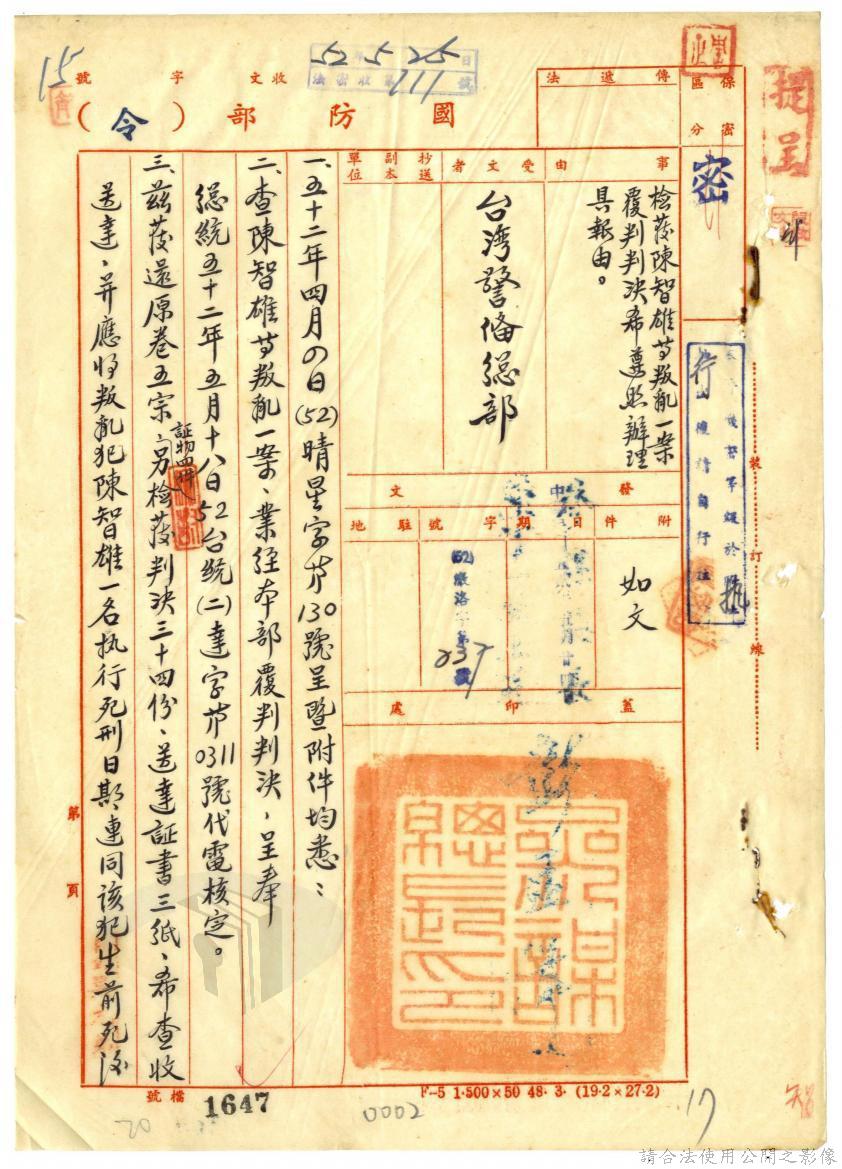 提呈
保密區分
密
傳遞法
國防部（令）
收文 字 號
15
52 5 25
法密收第111號
事由
檢發陳智雄等叛亂一案
覆判判決希遵照辦理
具報由。
受文者
台灣警備總部
抄送副本單位
附件
如文
發文
日期
字號
237
駐地
蓋印處
一、五十二年四月四日(52)晴星字第130號呈暨附件均悉：
二、查陳智雄等叛亂一案、業經本部覆判判決，呈奉
總統五十二年五月十八日52台統(二)達字第0311號代電核定。
三、茲發還原卷五宗、證物四件、另檢發判決三十四份、送達証書三紙、希查收
送達，并應將叛亂犯陳智雄一名執行死刑日期連同該犯生前死後
裝訂線
第 頁
檔號
1647
F-5 1·500×50 48·3· (19·2×27·2)
0002
17
20
請合法使用公開之影像